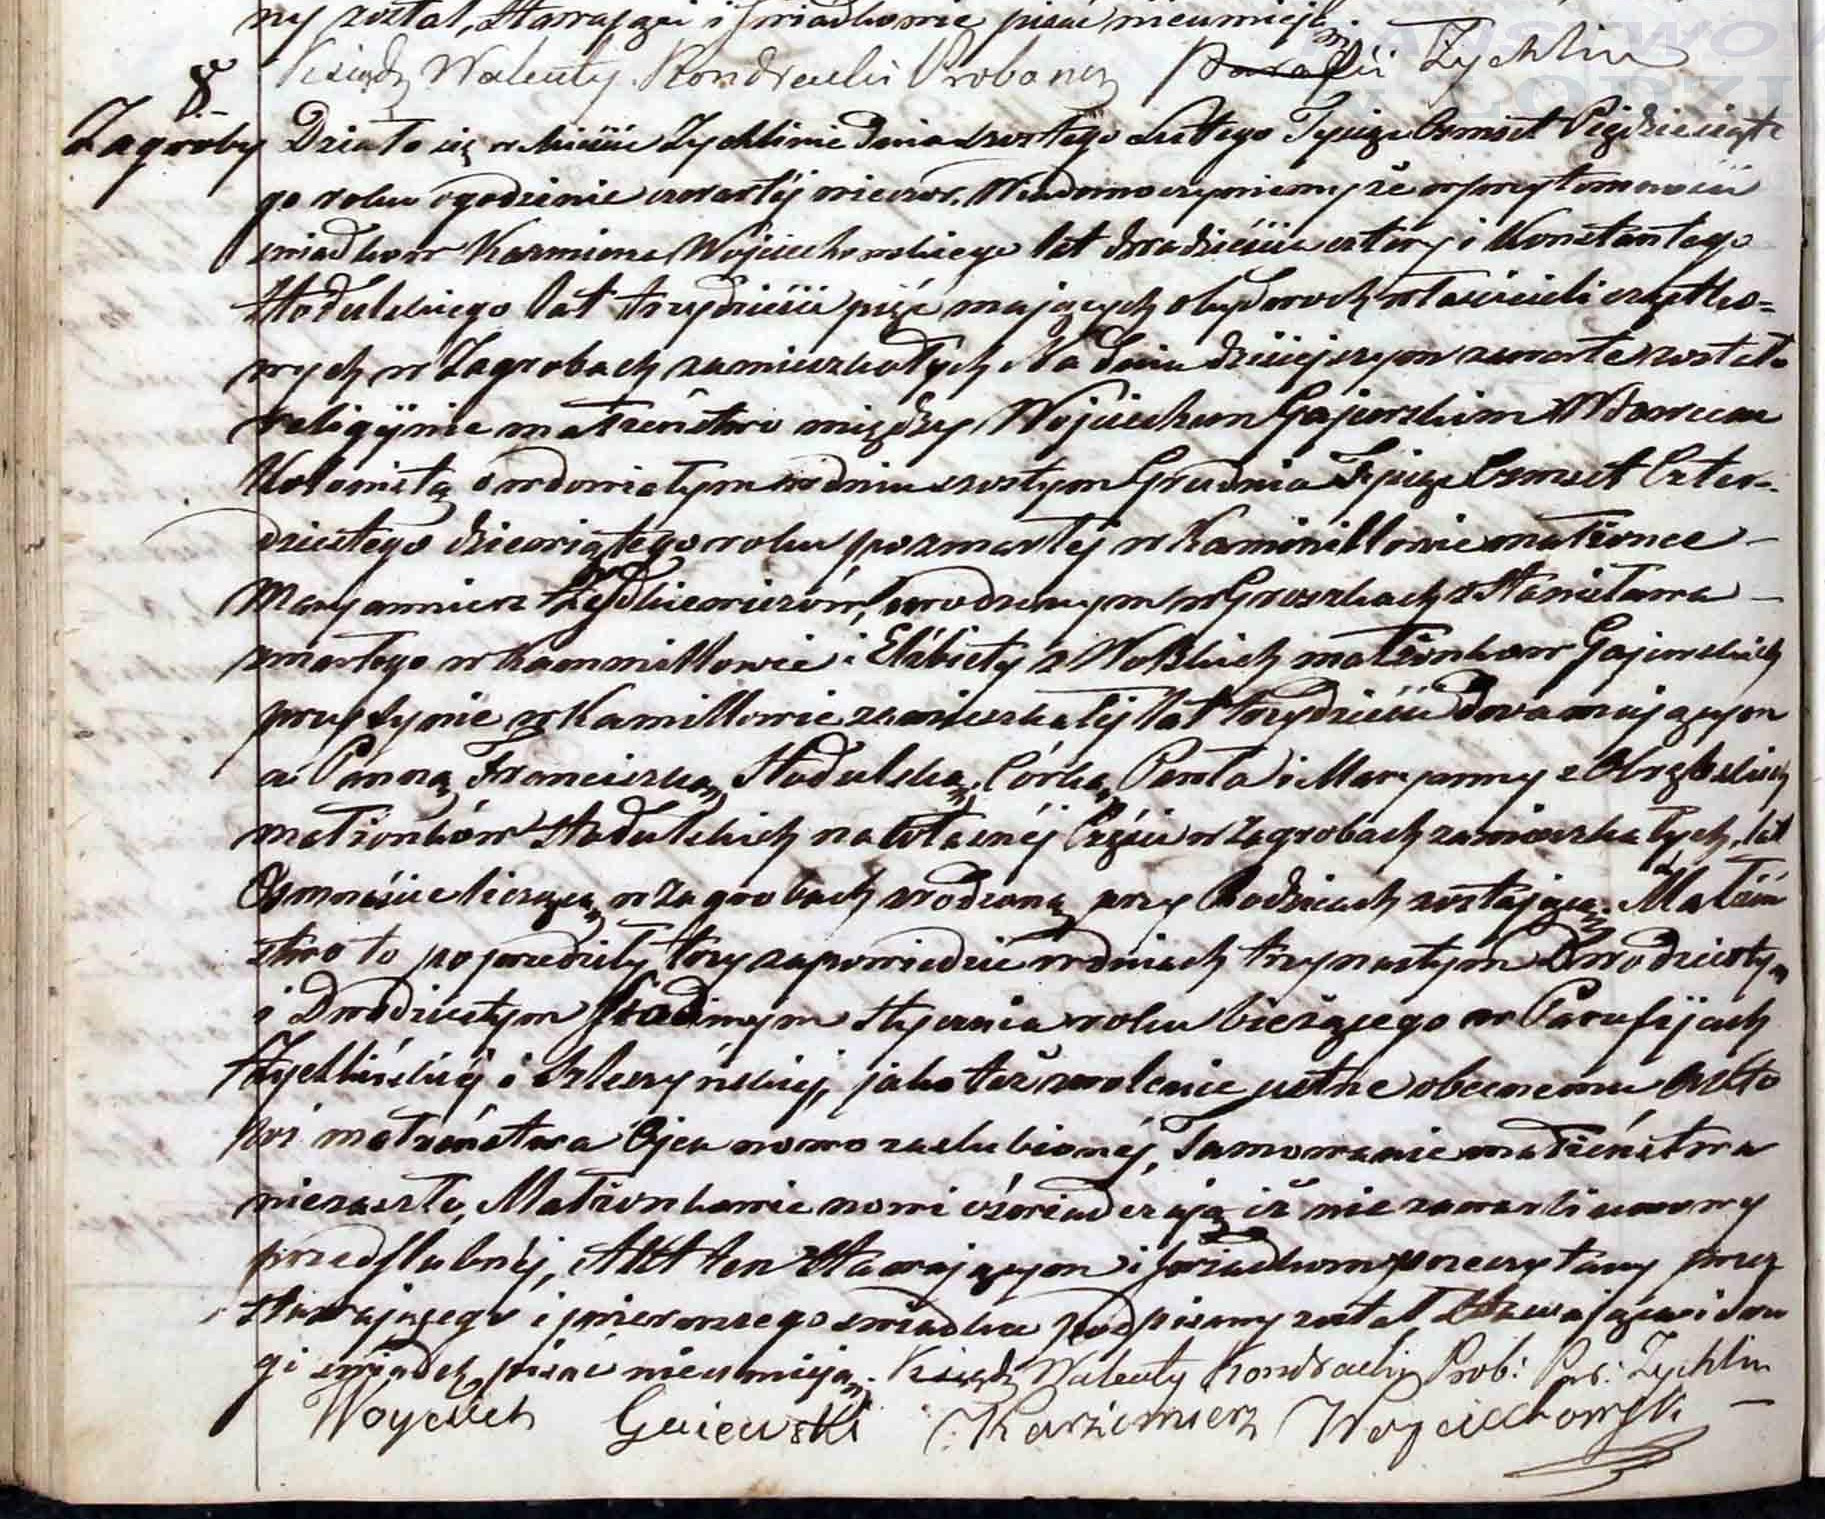 ny został, Stawający i świadkowie pisać nieumieją.
Ksiądz Walenty Kondracki Proboszcz Parafii Żychlin
8.
Zagroby
Działo się w Mieście Żychlinie dnia szóstego Lutego Tysiąc Osmset Pięдziesiąte
go roku o godzinie czwartéj wieczor. Wiadomo czyniemy że w przytomności
swiadkow Kazmierza Wojciechowskiego lat dwadzieścia cztery i Konstantego
Stodulskiego lat trzydzieści pięć mających obydwoch właścicieli cząstko=
wych w Zagrobach zamieszkałych Na dniu dzisiejszym zawarte zostało
religijnie małżeństwo między Wojciechem Gajewskim Wdowcem
Kolonistą owdowiałym w dniu szostym Grudnia Tysiąc Osmset Czter-
dziestego dziewiątego roku po zmarłej w Kamilłowie małżonce -
Maryannie z urodzonym w Groszkach z Stanisława -
zmarłego w Kammiłłowie i Elżbiety z Wolskich małżonkow Gajewskich
przy Synie w Kamiłłowie zamieszkałéj lat trzydzieści dwa mającym
a Panną Franciszką Stodulską, Córką Pawła i Maryanny z Obrębskich
małżonków Stodulskich na własnéj Częśći w Zagrobach zamieszkałych, lat
Osmnaście liczącą, w Zagrobach zrodzoną przy Rodzicach zostającą. Małżeń
stwo to poprzedziły trzy zapowiedzie w dniach trzynastym Dwudziestym
i Dwudziestym siodmym Stycznia roku bieżącego w Parafijach
Żychlińskiéj i Szleszyńskiej, jako też zwolenie ustne obecnemu Akto
wi małżeństwa Ojca nowo zaslubionéj, Tamowanie małżeństwa
niezaszło, Małżonkowie nowi oświadczają iż nie zawarli umowy
przedślubnéj, Akt ten Stawającym i świadkom przeczytany przez
stawającego i pierwszego swiadka podpisany został, Stawająca i dru
gi świadek pisać nieumieją. Ksiądz Walenty Kondracki Prob: Par: Żychlin
Woyciech Gaiewski Kazimierz Woyciechowski